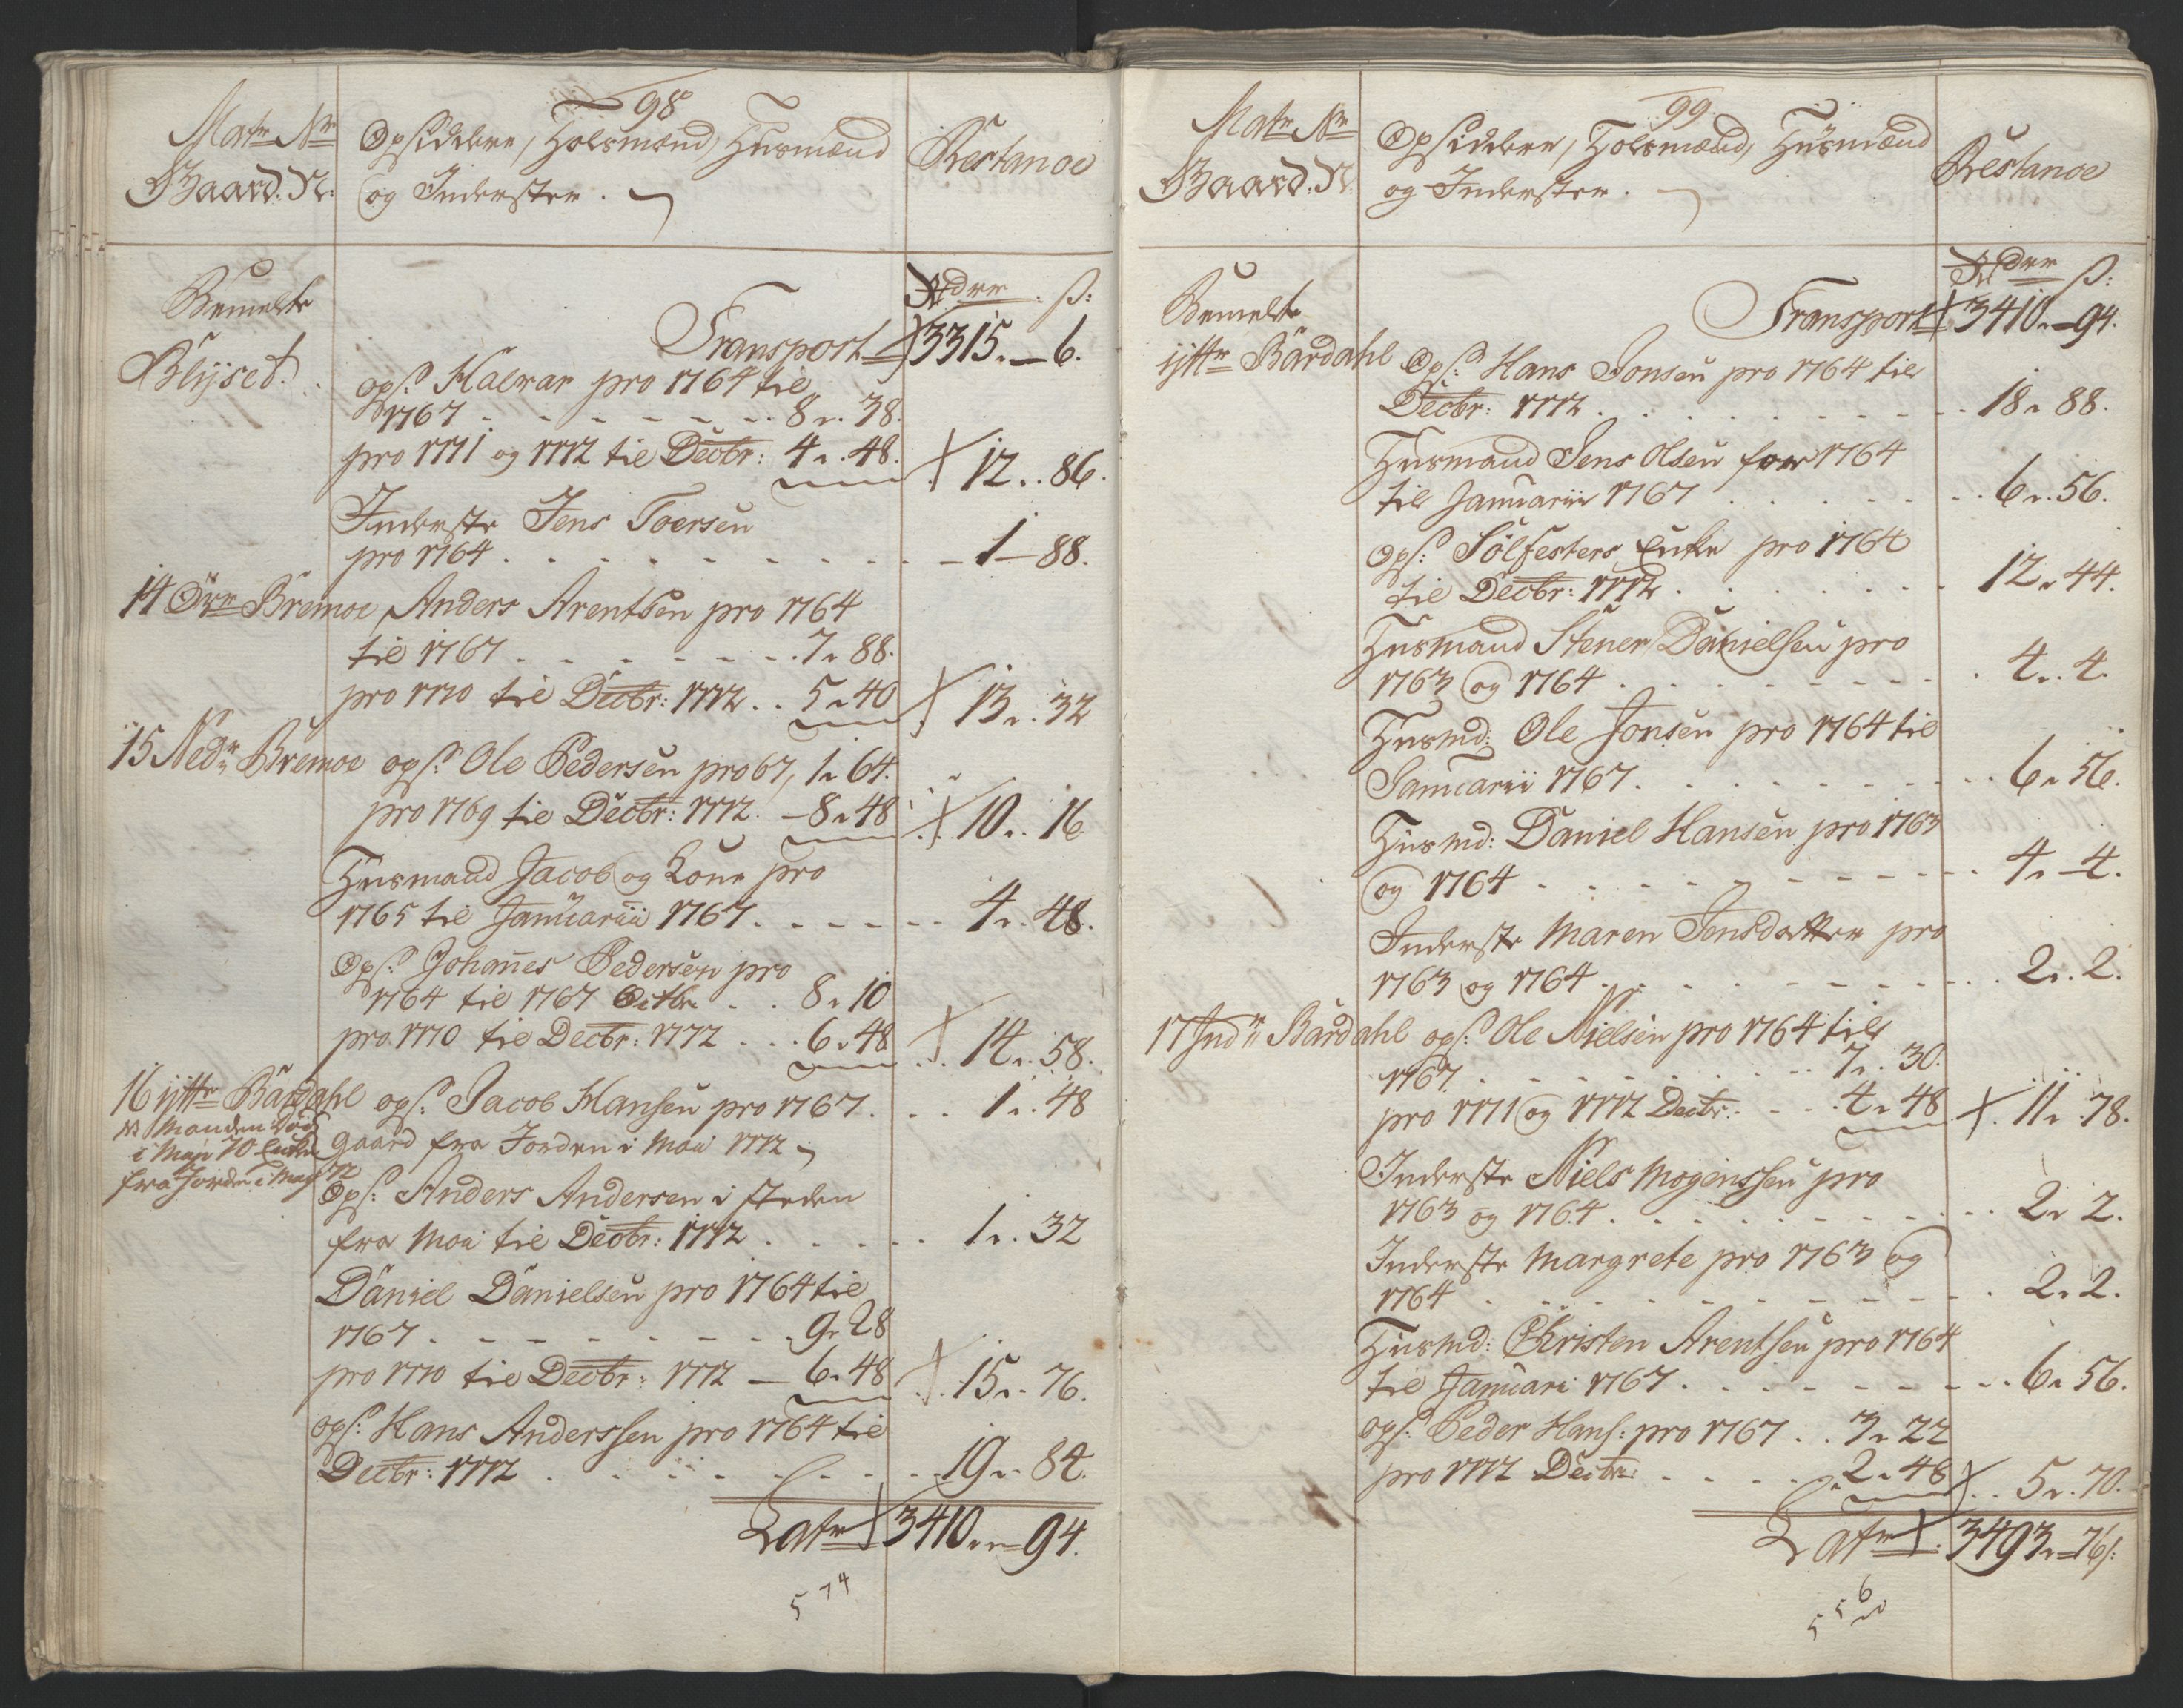 98
Matr Nr
Gaard: N:
Opsiddere, Holsmænd, Husmænd
og Inderster.
Restance
Bemelte
Blijset.
Rdrr : ß:
Transport 3315 „ — 6.
ops: Halvar pro 1764 til
1767 . . . . . . . 8 „ 38.
pro 1771 og 1772 til Decbr: 4 „ 48.
12 „ 86.
Inderste Jens Toersen
pro 1764 . . . . . . . . 1 — 88.
14 Övr Bremoe Anders Arentsen pro 1764
til 1767 . . . . . . . 7 „ 88.
pro 1770 til Decbr: 1772 . . 5 „ 40
13 „ 32
15 Nedr Bremoe ops: Ole Pedersen pro 67, 1 „ 64.
pro 1769 til Decbr: 1772. — 8 „ 48
10 „ 16
Husmand Jacob og Kone pro
1765 til Januarii 1767 . . . . . 4 „ 48.
Ops: Johañes Pedersen pro
1764 til 1767 . . 8 „ 10
pro 1770 til Decbr: 1772 . . . 6 „ 48
14 „ 58.
16 ijttr Bardahl ops: Jacob Hansen pro 1767 . . . 1 „ 48
Manden död
i Maji 70 Enken
fra Jorden i Maj 72
gaard fra Jorden i Maii 1772
Ops: Anders Andersen i steden
fra Maii til Decbr: 1772 . . . . . 1 „ 32
Daniel Danielsen pro 1764 til
1767 . . . . . . . . 9 „ 28
pro 1770 til Decbr: 1772 — 6 „ 48
15 „ 76.
ops: Hans Anderssen pro 1764 til
Decbr: 1772 . . . . . . . . 19 „ 84.
Latr 3410 „ — 94.
574
99.
Matr Nr
Gaard: N:
Opsiddere, Holsmænd, Husmænd
og Inderster.
Restance
Rdrr ß:
Bemelte
ijttr Bardahl
Transport 3410 „ — 94.
Ops: Hans Jonsen pro 1764 til
Decbr: 1772 . . . . . . . . . 18 „ 88.
Husmand Jens Olsen for 1764
til Januarii 1767 . . . . . . . 6 „ 56.
Ops: Sölfesters Enke pro 1764
til Decbr: 1772 . . . . . . . 12 „ 44.
Husmand Stener Danielsen pro
1763 og 1764 . . . . . . . . . 4 „ 4.
Husmd: Ole Jonsen pro 1764 til
Januarii 1767 . . . . . . . . . 6 „ 56.
Husmd: Daniel Hansen pro 1763
og 1764 . . . . . . . . . . . 4 „ — 4.
Inderste Maren Jensdatter pro
1763 og 1764 . . . . . . . . . 2 „ 2.
17 Indr Bardahl ops: Ole Nielsen pro 1764 til
1767 . . . . . . . . . . 7 „ 30.
pro 1771 og 1772 Decbr. . . . 4 „ 48
11 „ 78.
Inderste Niels Mogenssen pro
1763 og 1764 . . . . . . . . . 2 „ 2.
Inderste Margrete pro 1763 og
1764 . . . . . . . . . . . . . 2 „ 2.
Husmd: Christen Arentsen pro 1764
til Januari 1767 . . . . . . . . 6 „ 56.
ops: Peder Hans: pro 1767 . . 3 „ 22
pro 1772 Decbr. . . . . 2 „ 48
5 „ 70.
Latr 3493 „ 76ß:
556